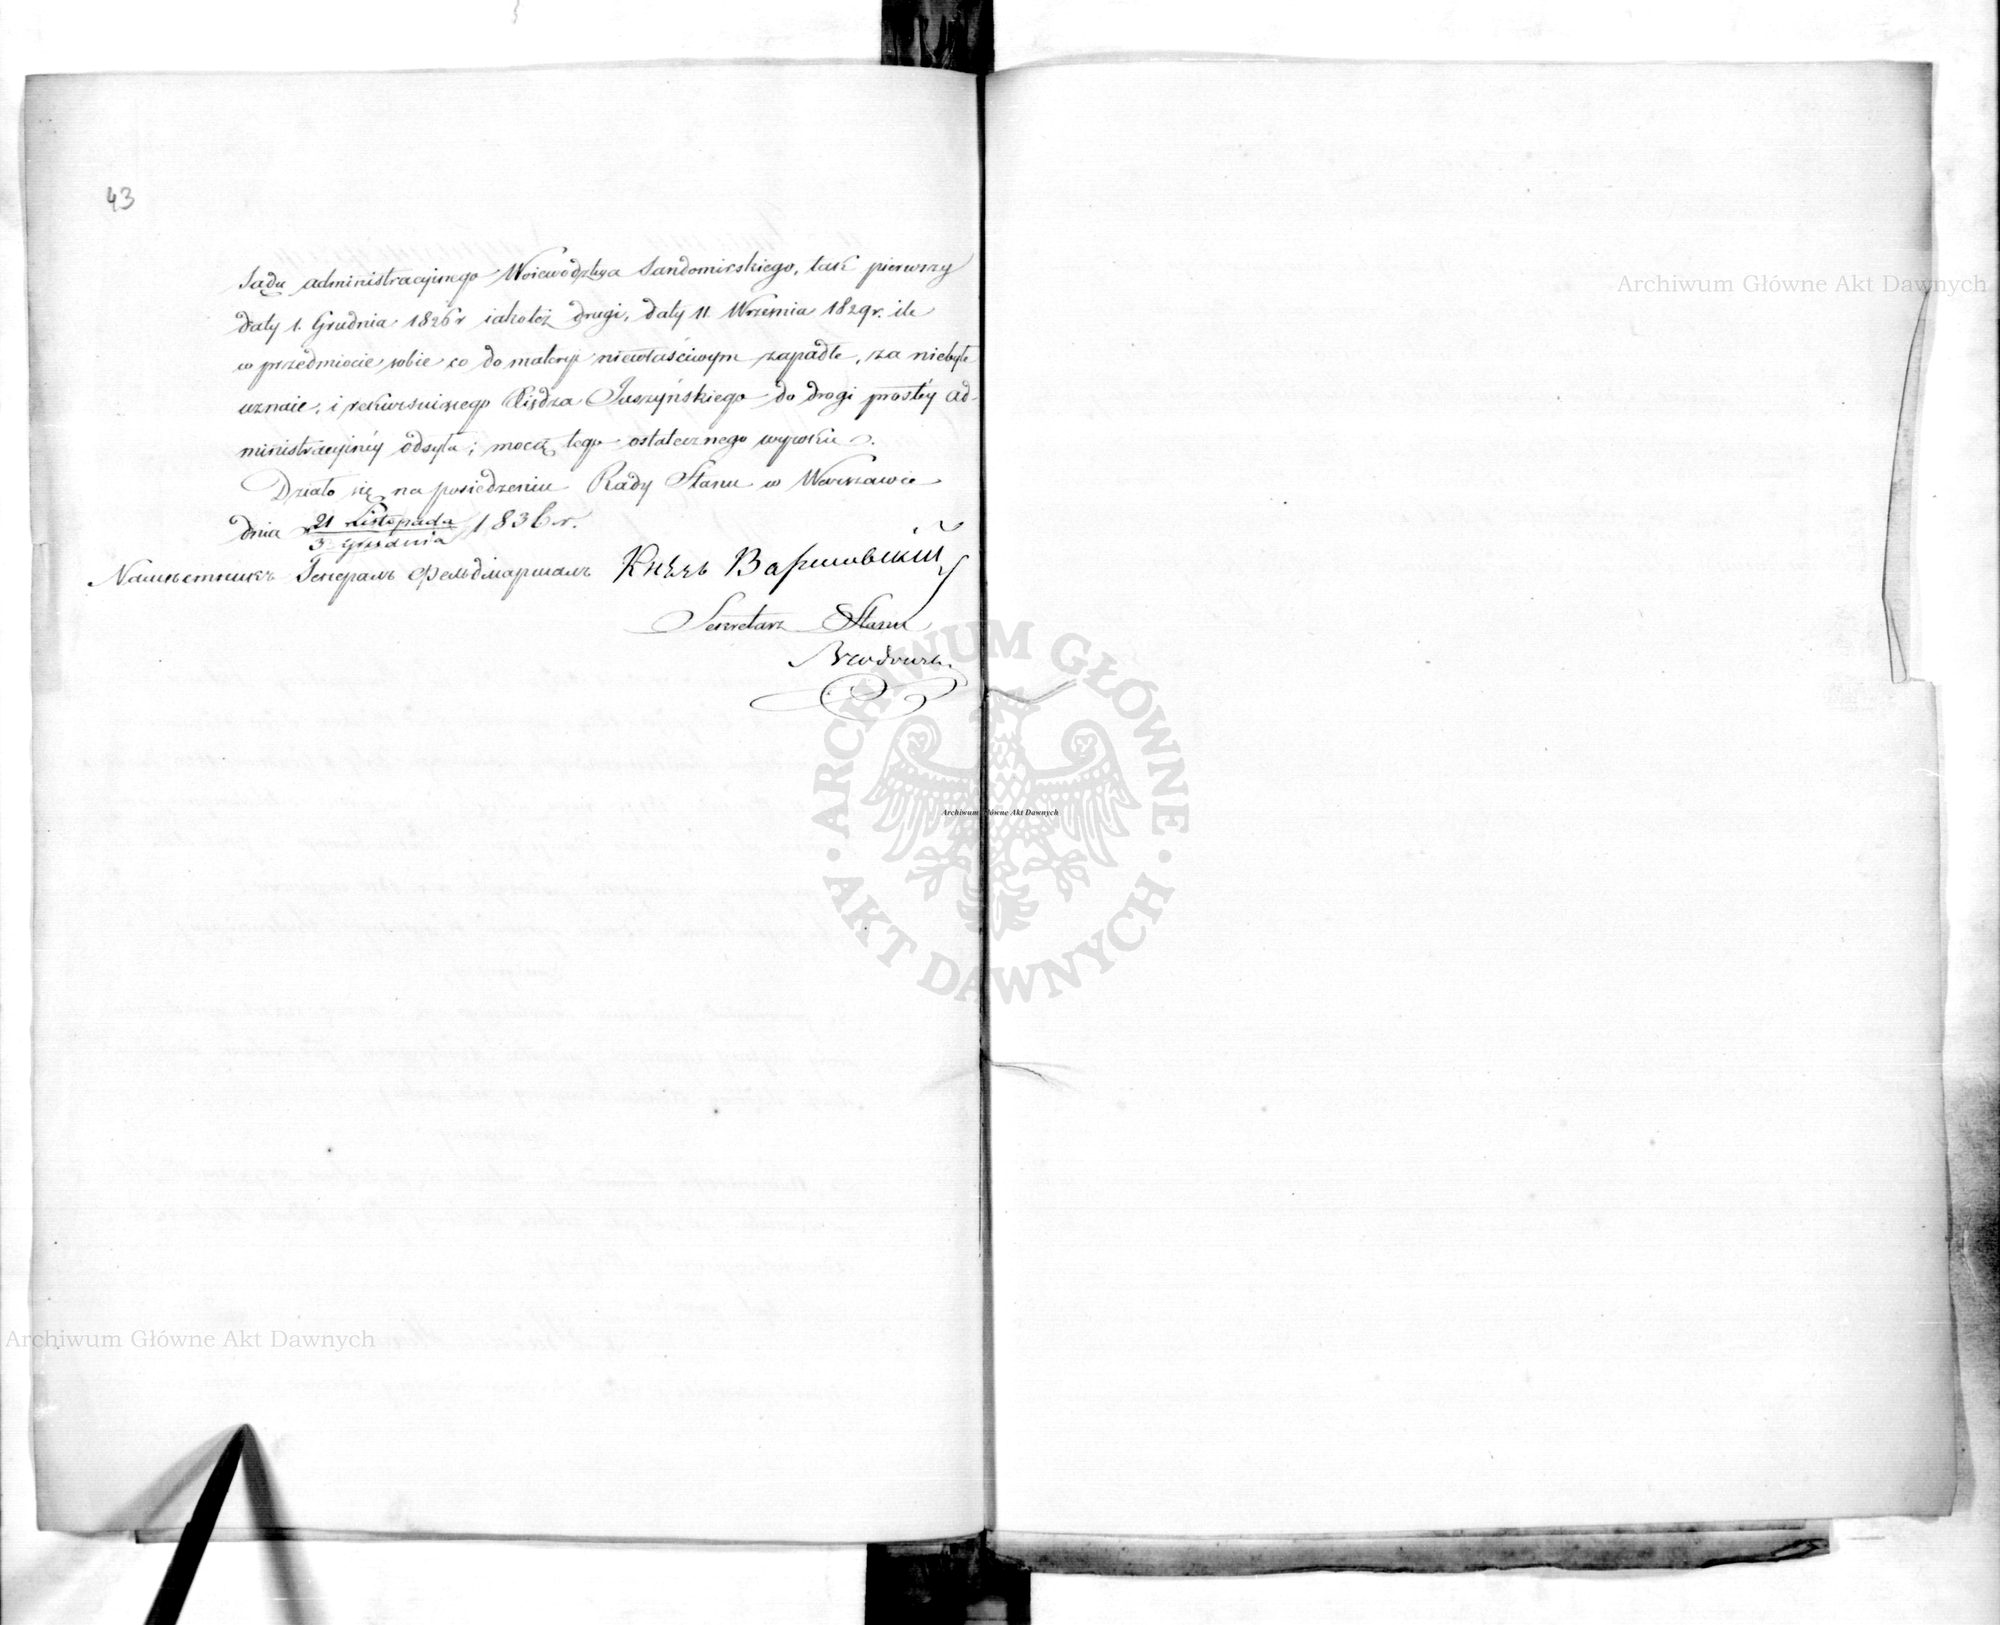 43
Sądu administracyjnego Woiewodztwa Sandomirskiego, tak pierwszy
daty 1. Grudnia 1826 r iakoteż drugi, daty 11. Września 1829 r. ile
w przedmiocie sobie co do materyi niewłaściwym zapadłe, za niebyłe
uznaie, i rekursuiącego Xiędza Juszyńskiego do drogi prostéy ad-
ministracyinéy odsyła; mocą tego ostatecznego wyroku.
Działo się na posiedzeniu Rady Stanu w Warszawie
dnia 21 Listopada / 3 Grudnia 1836 r.
Намѣстникъ Генералъ Фельдмаршалъ Князь Варшавскій
Sekretarz Stanu
Archiwum Główne Akt Dawnych
ARCHIWUM GŁÓWNE
AKT DAWNYCH
Archiwum Główne Akt Dawnych
Archiwum Główne Akt Dawnych